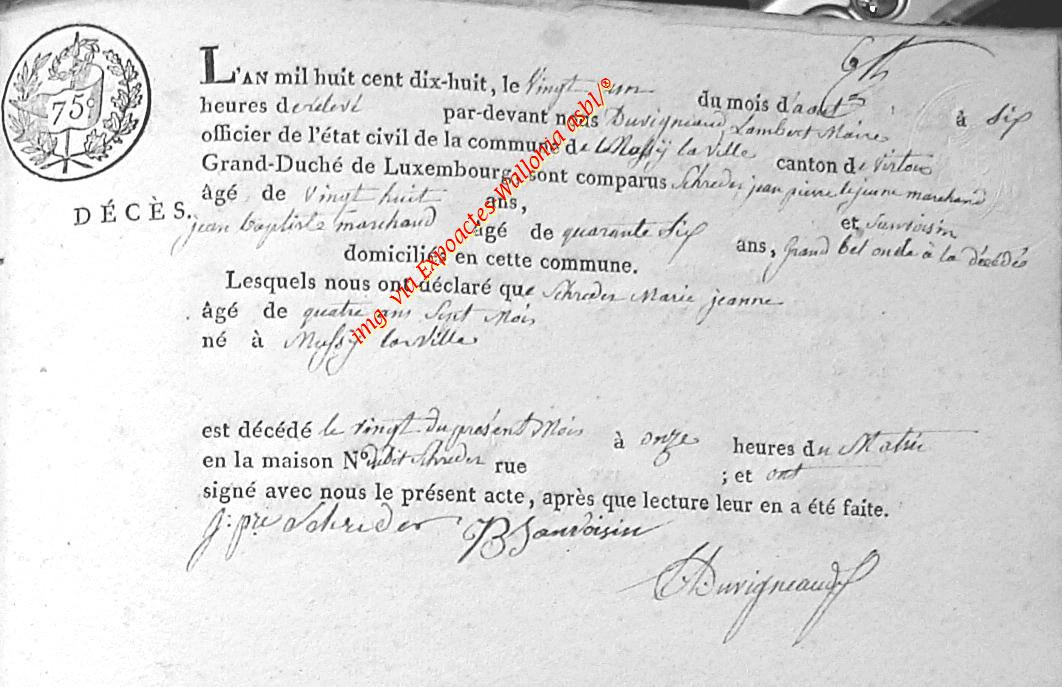 75 c
L'AN mil huit cent dix-huit, le vingt un du mois d'aout à six
heures de relevé par-devant nous Duvigneaud Lambert Maire
officier de l'état civil de la commune de Mussy la ville canton de virton
Grand-Duché de Luxembourg sont comparus Schreder jean pierre lejeune marchand
âgé de vingt huit ans, et Sanvoisin
DÉCÈS.
jean baptiste marchand âgé de quarante six ans, grand bel oncle à la décédés
domiciliés en cette commune.
Lesquels nous ont déclaré que Schreder Marie jeanne
âgé de quatre ans Sept Mois
né à Mussy la ville
est décédé le vingt du présent Mois à onze heures du Matin
en la maison N° dudit Schreder rue ; et ont
signé avec nous le présent acte, après que lecture leur en a été faite.
J: pre Schreder JB Sanvoisin
Duvigneaud
img via Expoactes Wallonia asbl/®